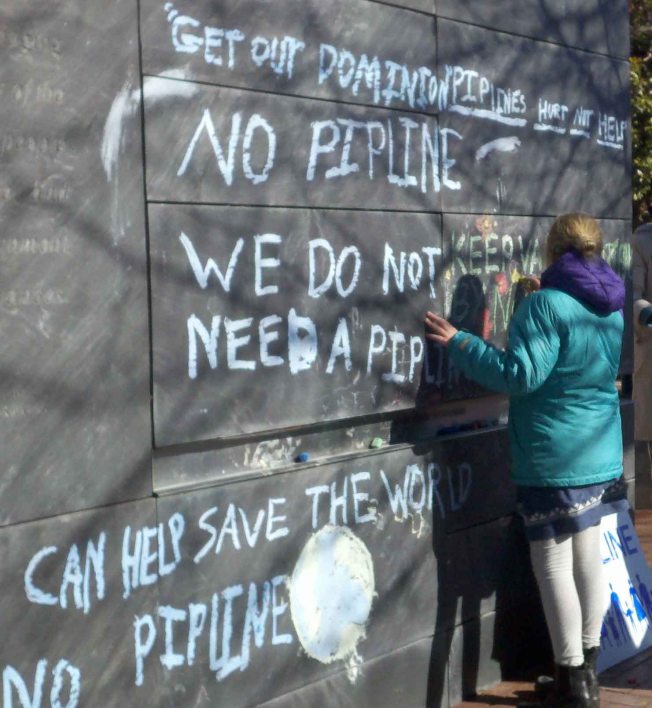 "GET OUT DOMINION PIPLINES HURT NOT HELP
NO PIPLINE
WE DO NOT
NEED A PIPLI
KEEP VA
CAN HELP SAVE THE WORLD
NO PIPLINE
LINE